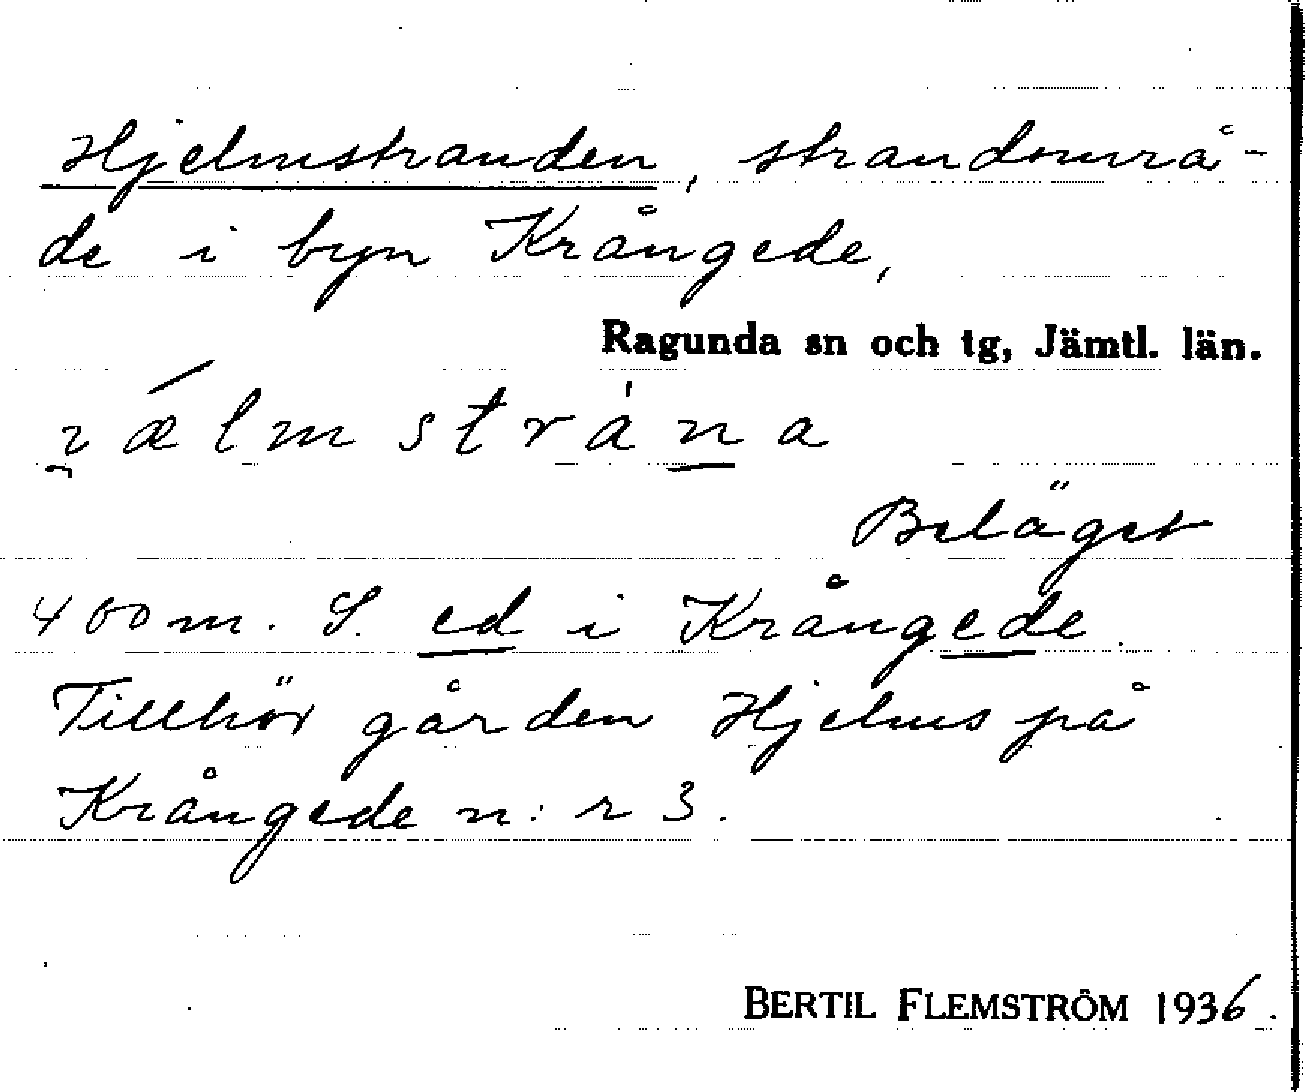 Hjelmstranden, strandområ-
de i byn Krångede,
Ragunda sn och tg, Jämtl. län.
i̯ǽlmstràn̲a
Beläget
400 m. S. e̲d̲ i Krånge̲d̲e.
Tillhör gården Hjelms på
Krångede n:r 3.
BERTIL FLEMSTRÖM 1936.